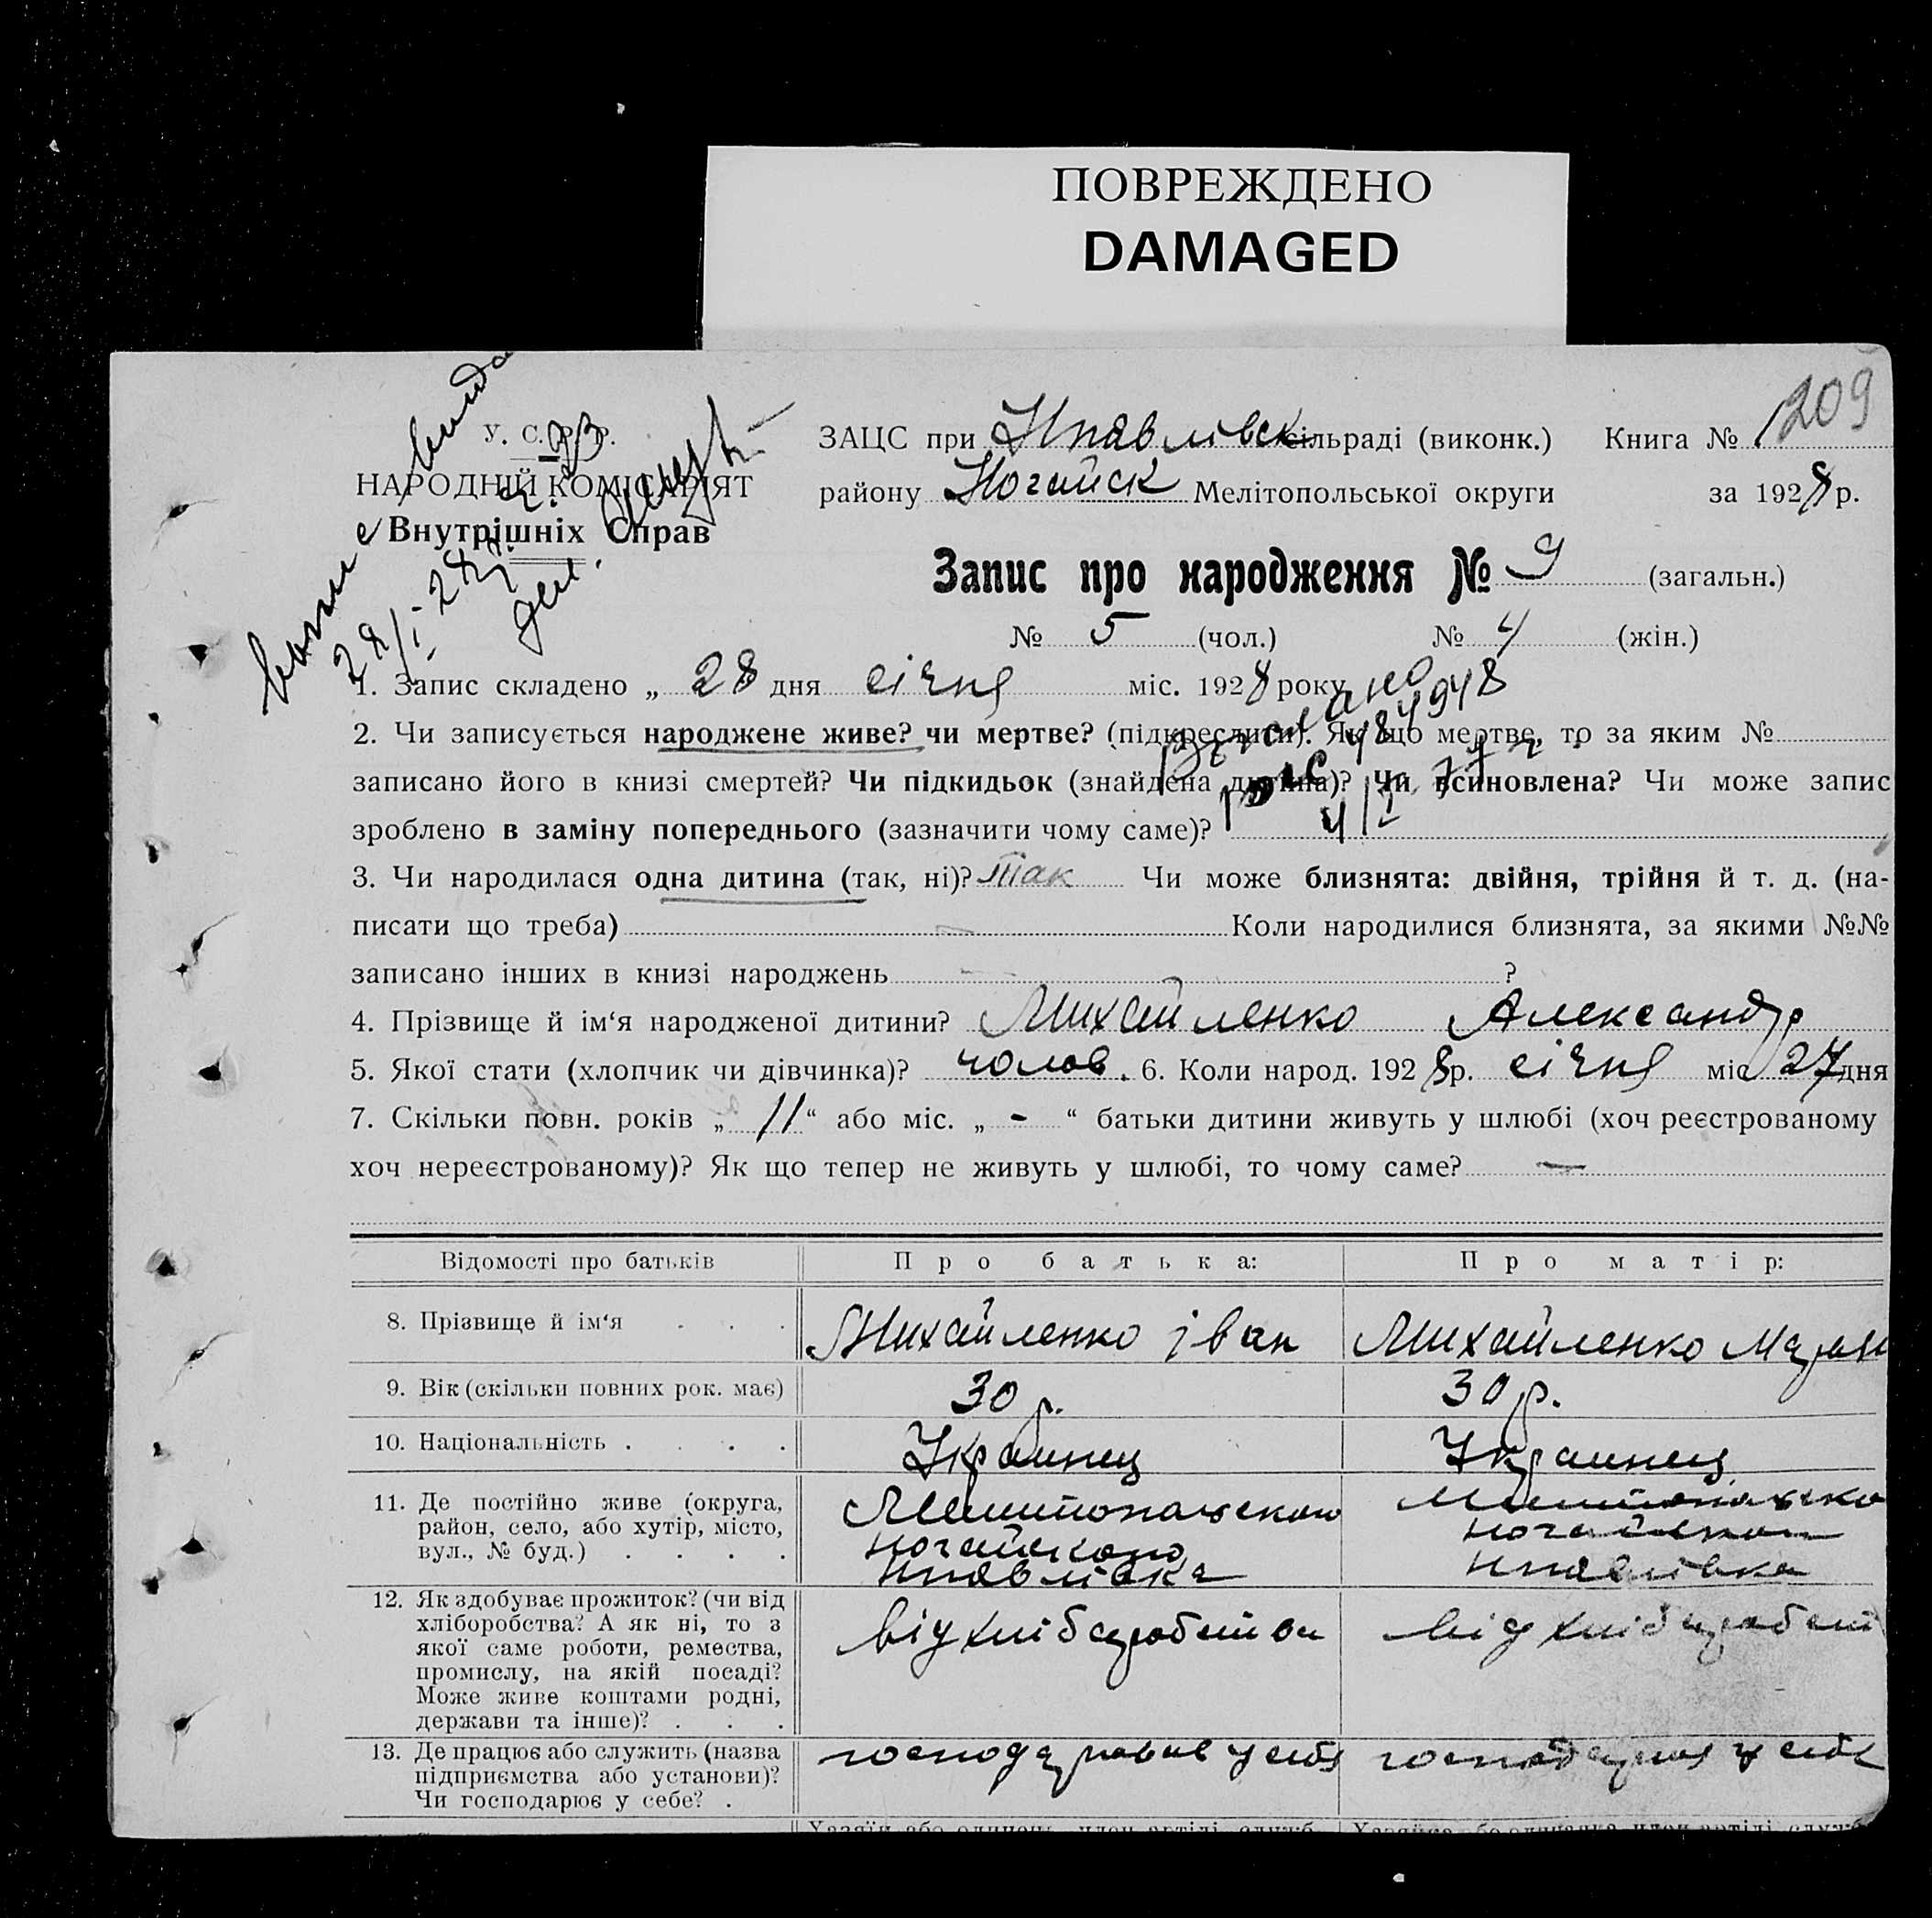 ПОВРЕЖДЕНО
DAMAGED
У. С. Р. Р.
НАРОДНІЙ КОМІСАРІЯТ
Внутрішніх Справ
ЗАЦС при Нпавлівск сільраді (виконк.) Книга № 209
району Ногайск Мелітопольської округи за 1928 р.
Запис про народження № 9 (загальн.)
№ 5 (чол.) № 4 (жін.)
1. Запис складено „ 28 дня січня міс. 1928 року
2. Чи записується народжене живе? чи мертве? (підкреслити). Як що мертве, то за яким №
записано його в книзі смертей? Чи підкидьок (знайдена дитина)? Чи всиновлена? Чи може запис
зроблено в заміну попереднього (зазначити чому саме)?
3. Чи народилася одна дитина (так, ні)? так Чи може близнята: двійня, трійня й т. д. (на-
писати що треба) — Коли народилися близнята, за якими №№
записано інших в книзі народжень — ?
4. Прізвище й ім‘я народженої дитини? Михайленко Александр
5. Якої стати (хлопчик чи дівчинка)? чолов. 6. Коли народ. 1928 р. січня міс 27 дня
7. Скільки повн. років „ 11 “ або міс. „ - “ батьки дитини живуть у шлюбі (хоч реєстрованому
хоч нереєстрованому)? Як що тепер не живуть у шлюбі, то чому саме? —
Відомості про батьків Про батька: Про матір:
8. Прізвище й ім‘я . . . Михайленко Іван Михайленко
9. Вік (скільки повних рок. має) 30 р. 30 р.
10. Національність . . . . Украинец Украинец
11. Де постійно живе (округа,
район, село, або хутір, місто,
вул., № буд.) . . . .
Мелитопольского
ногайского
нпавлівка
нпавлівка
12. Як здобуває прожиток? (чи від
хліборобства? А як ні, то з
якої саме роботи, ремества,
промислу, на якій посаді?
Може живе коштами родні,
держави та інше)? . . .
від хліборобства від хліборобст
13. Де працює або служить (назва
підприємства або установи)?
Чи господарює у себе? .
у себя у себе